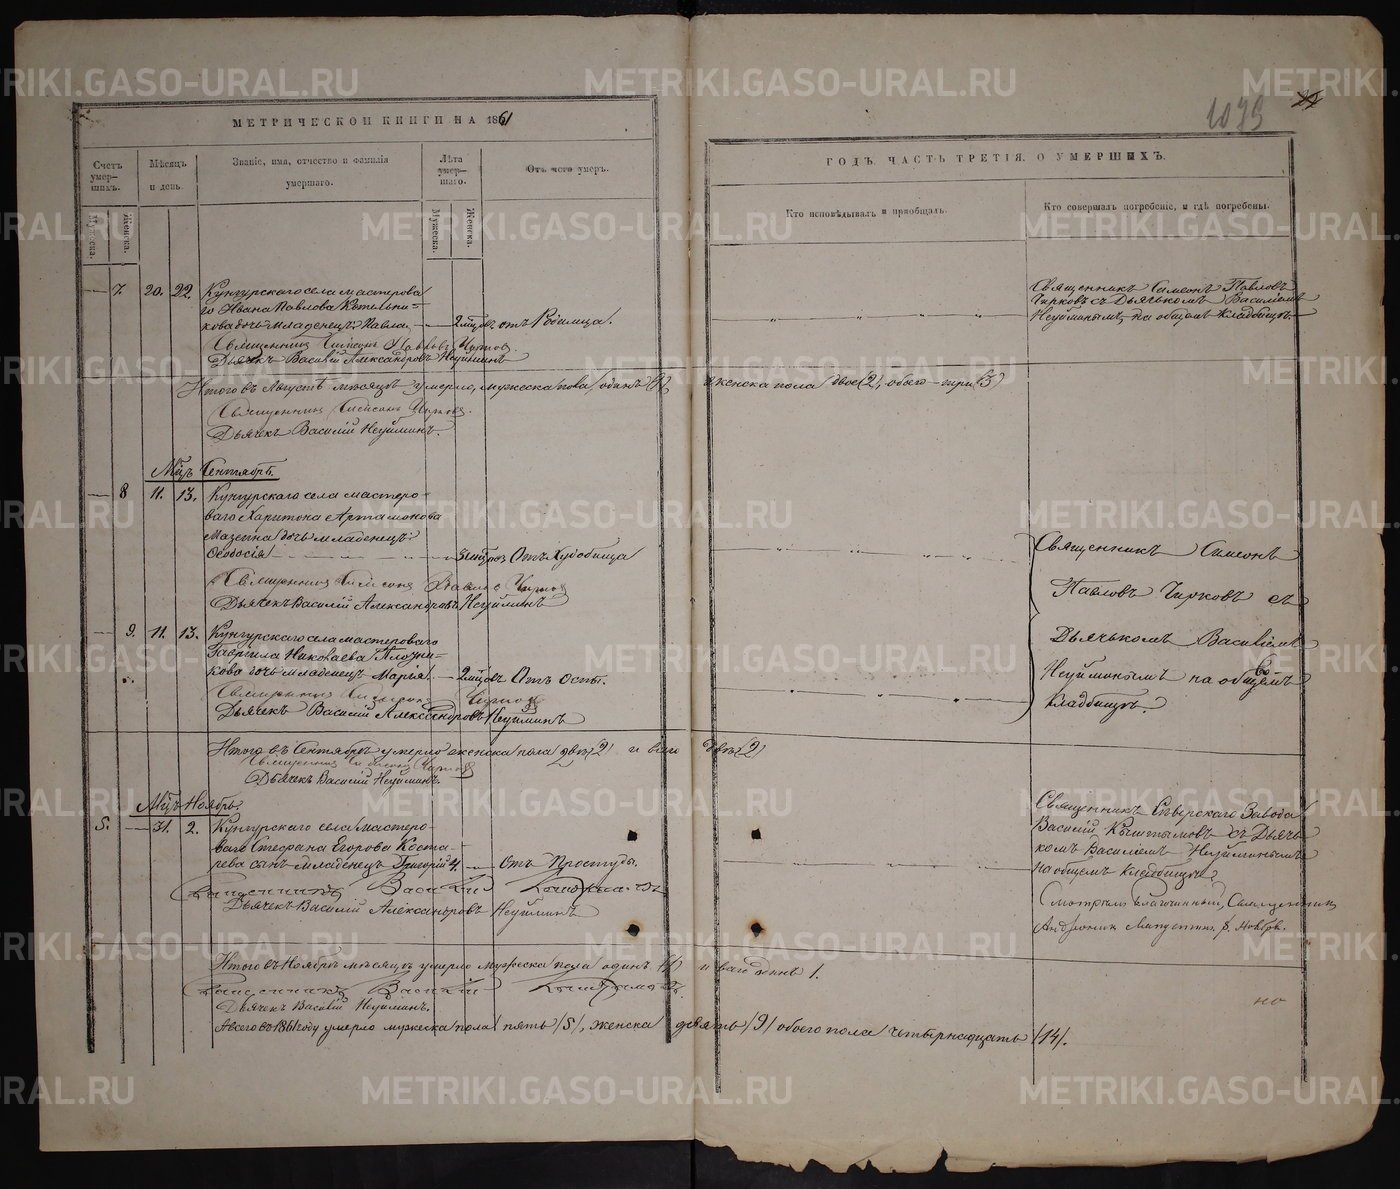 1079
МЕТРИЧЕСКОЙ КНИГИ НА 1861
ГОДЪ. ЧАСТЬ ТРЕТІЯ. О УМЕРШИХЪ.
Счетъ умер-шихъ.
Мѣсяцъ и день.
Званіе, имя, отчество и фамилія умершаго.
Лѣта умер-шаго.
Отъ чего умеръ.
Кто исповѣдывалъ и пріобщалъ.
Кто совершалъ погребеніе, и гдѣ погребены.
Мужеска.
Женска.
Мужеска.
Женска.
7. 20. 22. Кунгурскаго села мастерова
го Ивана Павлова Котельни-
кова дочь младенецъ Павла 2 мцов. отъ Родимца.
Священникъ Симеонъ Павловъ Чирковъ
Дьячекъ Василій Александровъ Неуйминъ
Священникъ Симеонъ Павловъ
Чирковъ съ Дьячькомъ Василіемъ
Неуйминымъ на общемъ Кладбищѣ
Итого въ Августѣ мѣсяцѣ умерло, мужеска пола одинъ (1) и женска пола двое (2), обоего три (3)
Священникъ Симеонъ Чирковъ
Дьячекъ Василій Неуйминъ.
Мцъ Сентябрь.
8 11. 13. Кунгурскаго села мастеро-
ваго Харитона Артамонова
Мазеина дочь младенецъ
Ѳеодосія Отъ Худобища
Священникъ Симеонъ Павловъ Чирковъ
Дьячекъ Василій Александровъ Неуйминъ
9. 11. 13. Кунгурскаго села мастероваго
Гавріила Николаева Плотни-
кова дочь младенецъ Марья 2 мцовъ Отъ Оспы.
Священникъ Симеонъ Чирковъ
Дьячекъ Василій Александровъ Неуйминъ
Священникъ Симеонъ
Павловъ Чирковъ съ
Дьячькомъ Василіемъ
Неуйминымъ на общемъ
Кладбищѣ.
Итого въ Сентябрѣ умерло женска пола двѣ (2) и всего двѣ (2)
Священникъ Симеонъ Чирковъ
Дьячекъ Василій Неуйминъ.
Мцъ Ноябрь.
5. 31. 2. Кунгурскаго села мастеро-
ваго Стефана Егорова Коста-
рева сынъ младенецъ Григорій 4. Отъ Простуды.
Священникъ Василій Кыштымовъ
Дьячекъ Василій Александровъ Неуйминъ
Священникъ Сѣверскаго Завода
Василій Кыштымовъ съ Дьячь-
комъ Василіемъ Неуйминымъ
на общемъ Кладбищѣ
Смотрѣлъ благочинный, Священникъ
Итого въ Ноябрѣ мѣсяцѣ умерло мужеска пола одинъ (1) и всего одинъ 1.
Священникъ Василій Кыштымовъ.
Дьячекъ Василій Неуйминъ.
А всего въ 1861 году умерло мужеска пола пять (5), женска девять (9) обоего пола четырнадцать (14).
METRIKI.GASO-URAL.RU